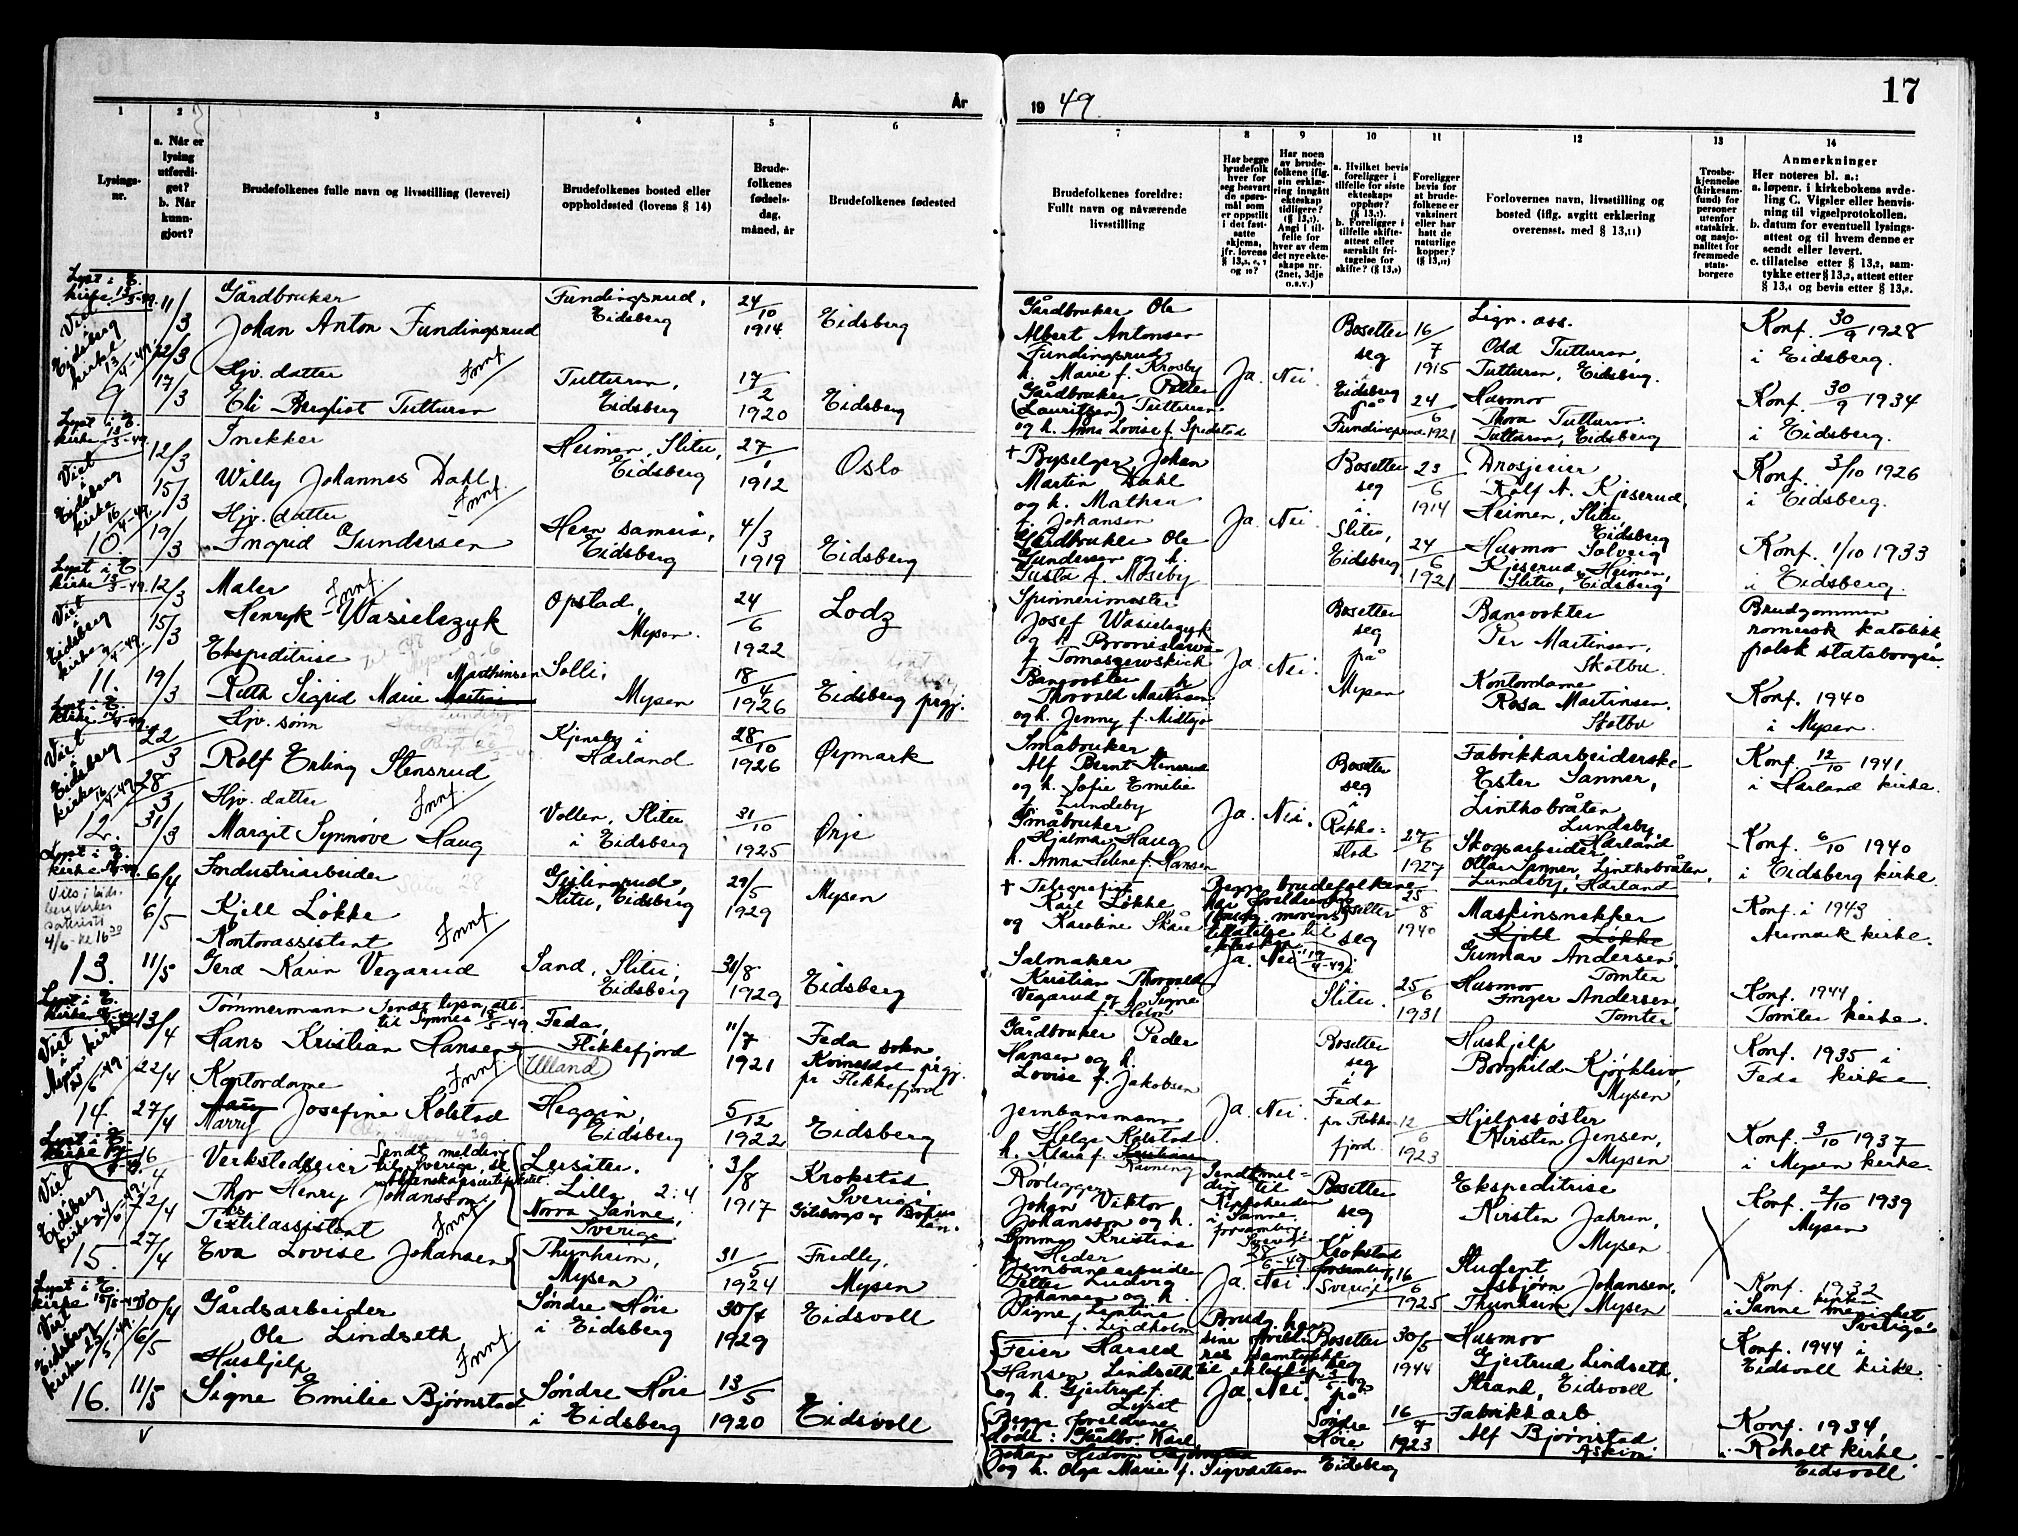 År
19 49.
17
1
2
3
4
5
6
7
8
9
10
11
12
13
14
Lysings-
nr.
a. Når er
lysing
utferdi-
get?
b. Når
kunn-
gjort?
Brudefolkenes fulle navn og livsstilling (levevei)
Brudefolkenes bosted eller
oppholdssted (lovens § 14)
Brude-
folkenes
fødsels-
dag,
måned, år
Brudefolkenes fødested
Brudefolkenes foreldre:
Fullt navn og nåværende
livsstilling
Har begge
brudefolk
hver for
seg besvart
de spørs-
mål som
er oppstilt
i det fast-
satte
skjema,
jfr. lovens
Har noen
av brude-
folkene iflg.
sin erklæ-
ring inngått
ekteskap
tidligere?
(§ 13,1).
Angi i til-
felle for
hver av dem
det nye ekte-
skaps nr.
(2net, 3dje
o.s.v.)
a. Hvilket bevis
foreligger i
tilfelle for siste
ekteskaps
opphør?
(§ 13,7).
b. Foreligger i
tilfelle skifte-
attest eller
særskilt fri-
tagelse for
skifte? (§ 13,8)
Foreligger
bevis for
at brude-
folkene er
vaksinert
eller har
hatt de
naturlige
kopper?
Forlovernes navn, livsstilling og
bosted (iflg. avgitt erklæring
overensst. med § 13,11)
Trosbe-
kjennelse
(kirkesam-
fund) for
personer
utenfor
statskirk.
og nasjo-
nalitet for
fremmede
stats-
borgere
Anmerkninger
Her noteres bl. a.:
a. løpenr. i kirkebokens avde-
ling C. Vigsler eller henvis-
ning til vigselprotokollen.
b. datum for eventuell lysings-
attest og til hvem denne er
sendt eller levert.
c. tillatelse etter § 13,2, sam-
tykke etter § 13,3, attest etter
§ 13,4 og bevis etter § 13,5.
Lyst i E.
kirke 13/3-49.
Viet
i
Eidsberg
kirke
13/4-49.
9
11/3
22/3
17/3
Gårdbruker
Johan Anton Fundingsrud
Hjv. datter
Innf.
Eli Bergliot Tutturen
Fundingsrud,
Eidsberg
Tutturen,
Eidsberg
24/10
1914
17/2
1920
Eidsberg
Eidsberg
Gårdbruker Ole
Albert Antonsen
Fundingsrud
h. Marie f. Krosby
Gårdbruker Petter
(Lauritzen) Tutturen
og h. Anna Lovise f.
Ja. Nei.
Bosetter
seg
i
Eidsberg
på
Fundingsrud
16/7
1915
24/6
1921
Lign. ass.
Odd Tutturen,
Tutturen, Eidsberg.
Husmor
Thora Tutturen.
Tutturen, Eidsberg
Konf. 30/9 1928
i Eidsberg.
Konf. 30/9 1934
i Eidsberg.
Lyst i E.
kirke 13/3-49.
Viet
i
Eidsberg
kirke
16/4-49.
10
12/3
15/3
19/3
Snekker
Willy Johannes Dahl
Innf.
Hjv. datter
Ingrid Gundersen
Heimen, Slitu,
Eidsberg
Hern samein,
Eidsberg
27/1
1912
4/3
1919
Oslo
Eidsberg
† Byselger Johan
Martin Dahl
og h. Mathea
f. Johansen
Gårdbruker Ole
Gundersen og h.
Gusta f. Moseby
Ja. Nei.
Bosetter
seg
i
Slitu,
Eidsberg
23/6
1914
24/6
1921
Drosjeeier
Rolf A. Kjeserud,
Heimen, Slitu,
Eidsberg
Husmor Solveig
Kjeserud, Heimen,
Slitu, Eidsberg
Konf. 3/10 1926
i Eidsberg.
Konf. 1/10 1933
i Eidsberg.
Lyst i E.
kirke 13/3-49.
Viet
i
Eidsberg
kirke
11.
12/3
15/3
19/3
Maler
Innf.
Henryk Wasielczyk
Ekspeditrise
Marthinsen
Ruth Sigrid Marie
Opstad,
Mysen.
Solli,
Mysen
24/6
1922
18/4
1926
Lodz
Eidsberg prgj.
Spinnerimester
Josef Wasielczyk
og h. Bronislawa
f. Tomaszewskich
Banevokter
Thorvald Martinsen
og h. Jenny f. Midtsjø
Ja. Nei.
Bosetter
seg
på
Mysen
Banevokter
Per Martinsen,
Skotbu.
Kontordame
Rosa Martinsen.
Skotbu
Brudgommen
romersk katolikk
polsk statsborger.
Konf. 1940
i Mysen.
Viet
i
Eidsberg
kirke
16/4-49
12.
22/3
28/3
31/3
Hjv. sønn
Rolf Erling Stensrud
Hjv. datter
Innf.
Margit Synnøve Haug
Kjensby i
Hærland
Volten, Slitu
i Eidsberg
28/10
1926
31/10
1925
Øymark
Ørje
Småbruker
Alf Bernt Stensrud
og h. Sofie Emilie
f. Lundeby
Småbruker
Hjalmar Haug
h. Anna Helene f. Hansen
Ja. Nei.
Bosetter
seg
i
Rakke-
stad
27/6
1927
Fabrikkarbeiderske
Ester Sanner,
Linthobråten,
Lundeby,
Hærland
Skogsarbeider
Ottar Sanner, Linthobråten,
Lundeby, Hærland
Konf. 12/10 1941
i Hærland kirke.
Konf. 6/10 1940
i Eidsberg kirke.
13.
6/4
6/5
11/5
Industriarbeider
Kjell Løkke
Kontorassistent
Innf.
Gerd Karin Vegarud
Slitu, Eidsberg
Sand, Slitu,
Eidsberg
29/5
1929
31/8
1929
Mysen
Eidsberg
† Telegrafist
Karl Løkke
og Karoline Skåre
Salmaker
Kristian Thorvald
Vegarud og h. Signe
f. Holm
Begge brudefolkene
har foreldrenes
(brudg. morens)
tillatelse til
ekteskap
Ja. Nei.
Bosetter
seg
i
Slitu.
25/8
1940
25/6
1931
Maskinsnekker
Kjell Løkke
Gunnar Andersen,
Tomter
Husmor
Inger Andersen,
Tomter
Konf. i 1943
Aremark kirke.
Konf. 1944
Tomter kirke.
Viet
i
Mysen kirke
14.
13/4
22/4
27/4
Tømmermann
Hans Kristian Hansen
Kontordame
Innf.
Marry Josefine Kolstad
Feda,
Flekkefjord
(Ulland)
Heggin,
Eidsberg
11/7
1921
5/12
1922
Feda sokn,
Kvinesdal prgj.
pr Flekkefjord
Eidsberg
Gårdbruker Peder
Hansen og h.
Lovise f. Jakobsen
Jernbanemann
Helge Kolstad
Ja. Nei.
Bosetter
seg
i
Feda
pr Flekke-
fjord.
12/6
1923
Hushjelp
Borghild Kjørkleiv,
Mysen
Hjelpesøster
Kirsten Jensen,
Mysen
Konf. 1935 i
Feda kirke
Konf. 3/10 1937
i Mysen kirke.
Viet
i
Eidsberg
kirke
15.
16/4
22/4
27/4
Verkstedeier
Sendt melding
til Sverige
Thor Henry Johansson
Tekstilassistent
Innf.
Eva Lovise Johansen
Lersäter.
Lilla, 2:4
Norra Sanne,
Sverige
Thynheim,
Mysen
3/8
1917
31/5
1924
Krokstad
Sverige
Göteborgs og Bohus
län.
Fredly,
Mysen
Rørlegger
Johan Viktor
Johansson og h.
Emma Kristina
f. Heder
Jernbanearbeider
Petter Ludvig
Johansen og h.
Signe Lentine
f. Lindholm
Ja. Nei.
Bosetter
seg
i
Krokstad
forsamling,
Sverige
16/6
1925
Ekspeditrise
Kirsten Jahren,
Mysen.
Student
Asbjørn Johansen,
Thynheim, Mysen
Konf. 2/10 1939
Mysen
Konf. 1932
i Sanne kirke
Sverige.
Lyst i E.
Viet
Eidsberg
kirke
16.
30/4
6/5
11/5
Gårdsarbeider
Ole Lindseth
Hushjelp
Innf.
Signe Emilie Bjørnstad
Søndre Høie
i Eidsberg
Søndre Høie
i Eidsberg
30/4
1929
13/5
1920
Eidsvoll
Eidsvoll
Feier Harald
Hansen Lindseth
og h. Gjertrud f.
Lyset
Begge foreldrene
døde: Gårdbr. Karl
Johan Hedom
og h. Olga Marie f. Sigvartsen
Brudg. har
sine foreld-
res samtykke
til ekteskap
Ja. Nei.
Bosetter
seg
på
Søndre
Høie
Eidsberg
30/5
1944
16/4
1923
Husmor
Gjertrud Lindseth,
Strand, Eidsvoll
Fabrikkarb.
Alf Bjørnstad
Askim
Konf. 1944 i
Eidsvoll kirke.
Konf. 1934,
i Råholt kirke
Eidsvoll